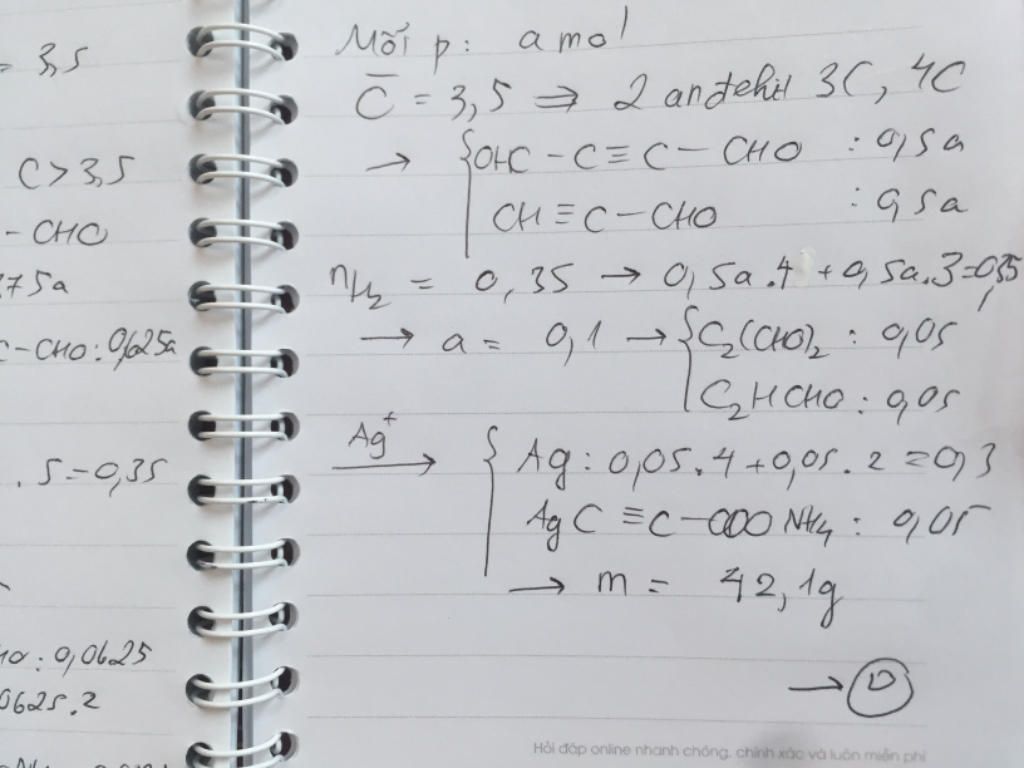 = 3,5
C > 3,5
- CHO
75a
C-CHO : 0,625a
. 5 = 0,35
HO : 0,0625
0625.2
Mỗi p : a mol
C̅ = 3,5 ⇒ 2 anđehit 3C, 4C
→ { OHC - C ≡ C - CHO : 0,5a
CH ≡ C - CHO : 0,5a
nH₂ = 0,35 → 0,5a.4 + 0,5a.3 = 0,35
→ a = 0,1 → { C₂(CHO)₂ : 0,05
C₂HCHO : 0,05
Ag⁺ → { Ag : 0,05.4 + 0,05.2 = 0,3
AgC ≡ C - COONH₄ : 0,05
→ m = 42,1g
→ D
Hỏi đáp online nhanh chóng, chính xác và luôn miễn phí